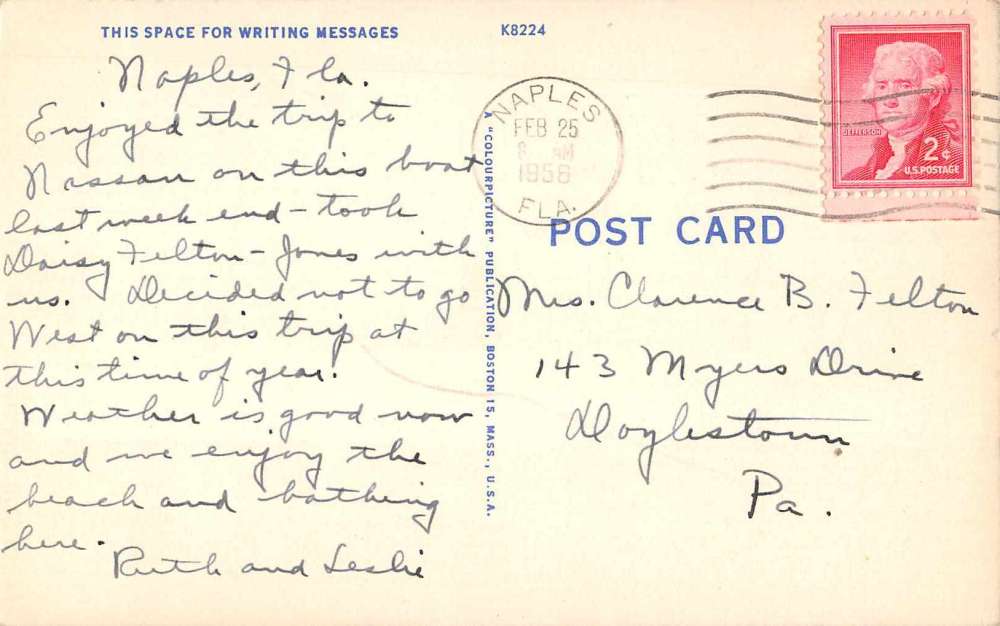 THIS SPACE FOR WRITING MESSAGES
K8224
Naples, Fla.
Enjoyed the trip to
Nassau on this boat
last week end - took
Daisy Felton-Jones with
us. Decided not to go
West on this trip at
this time of year.
Weather is good now
and we enjoy the
beach and bathing
here.
Ruth and Leslie
A "COLOURPICTURE" PUBLICATION, BOSTON 15, MASS., U.S.A.
NAPLES
FEB 25
8 AM
1958
FLA.
JEFFERSON
2¢
U.S. POSTAGE
POST CARD
Mrs. Clarence B. Felton
143 Myers Drive
Doylestown
Pa.